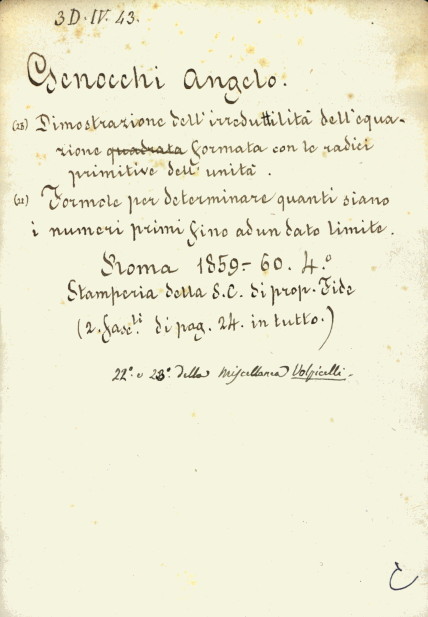 3 D. IV. 43.
Genocchi Angelo.
(23) Dimostrazione dell'irreduttilità dell'equa-
zione quadrata formata con le radici
primitive dell'unità.
(22) Formole per determinare quanti siano
i numeri primi fino ad un dato limite.
Roma 1859-60. 4.º
Stamperia della S.C. di prop. Fide
(2. fasc.li di pag. 24. in tutto.)
22º e 23º della Miscellanea Volpicelli.